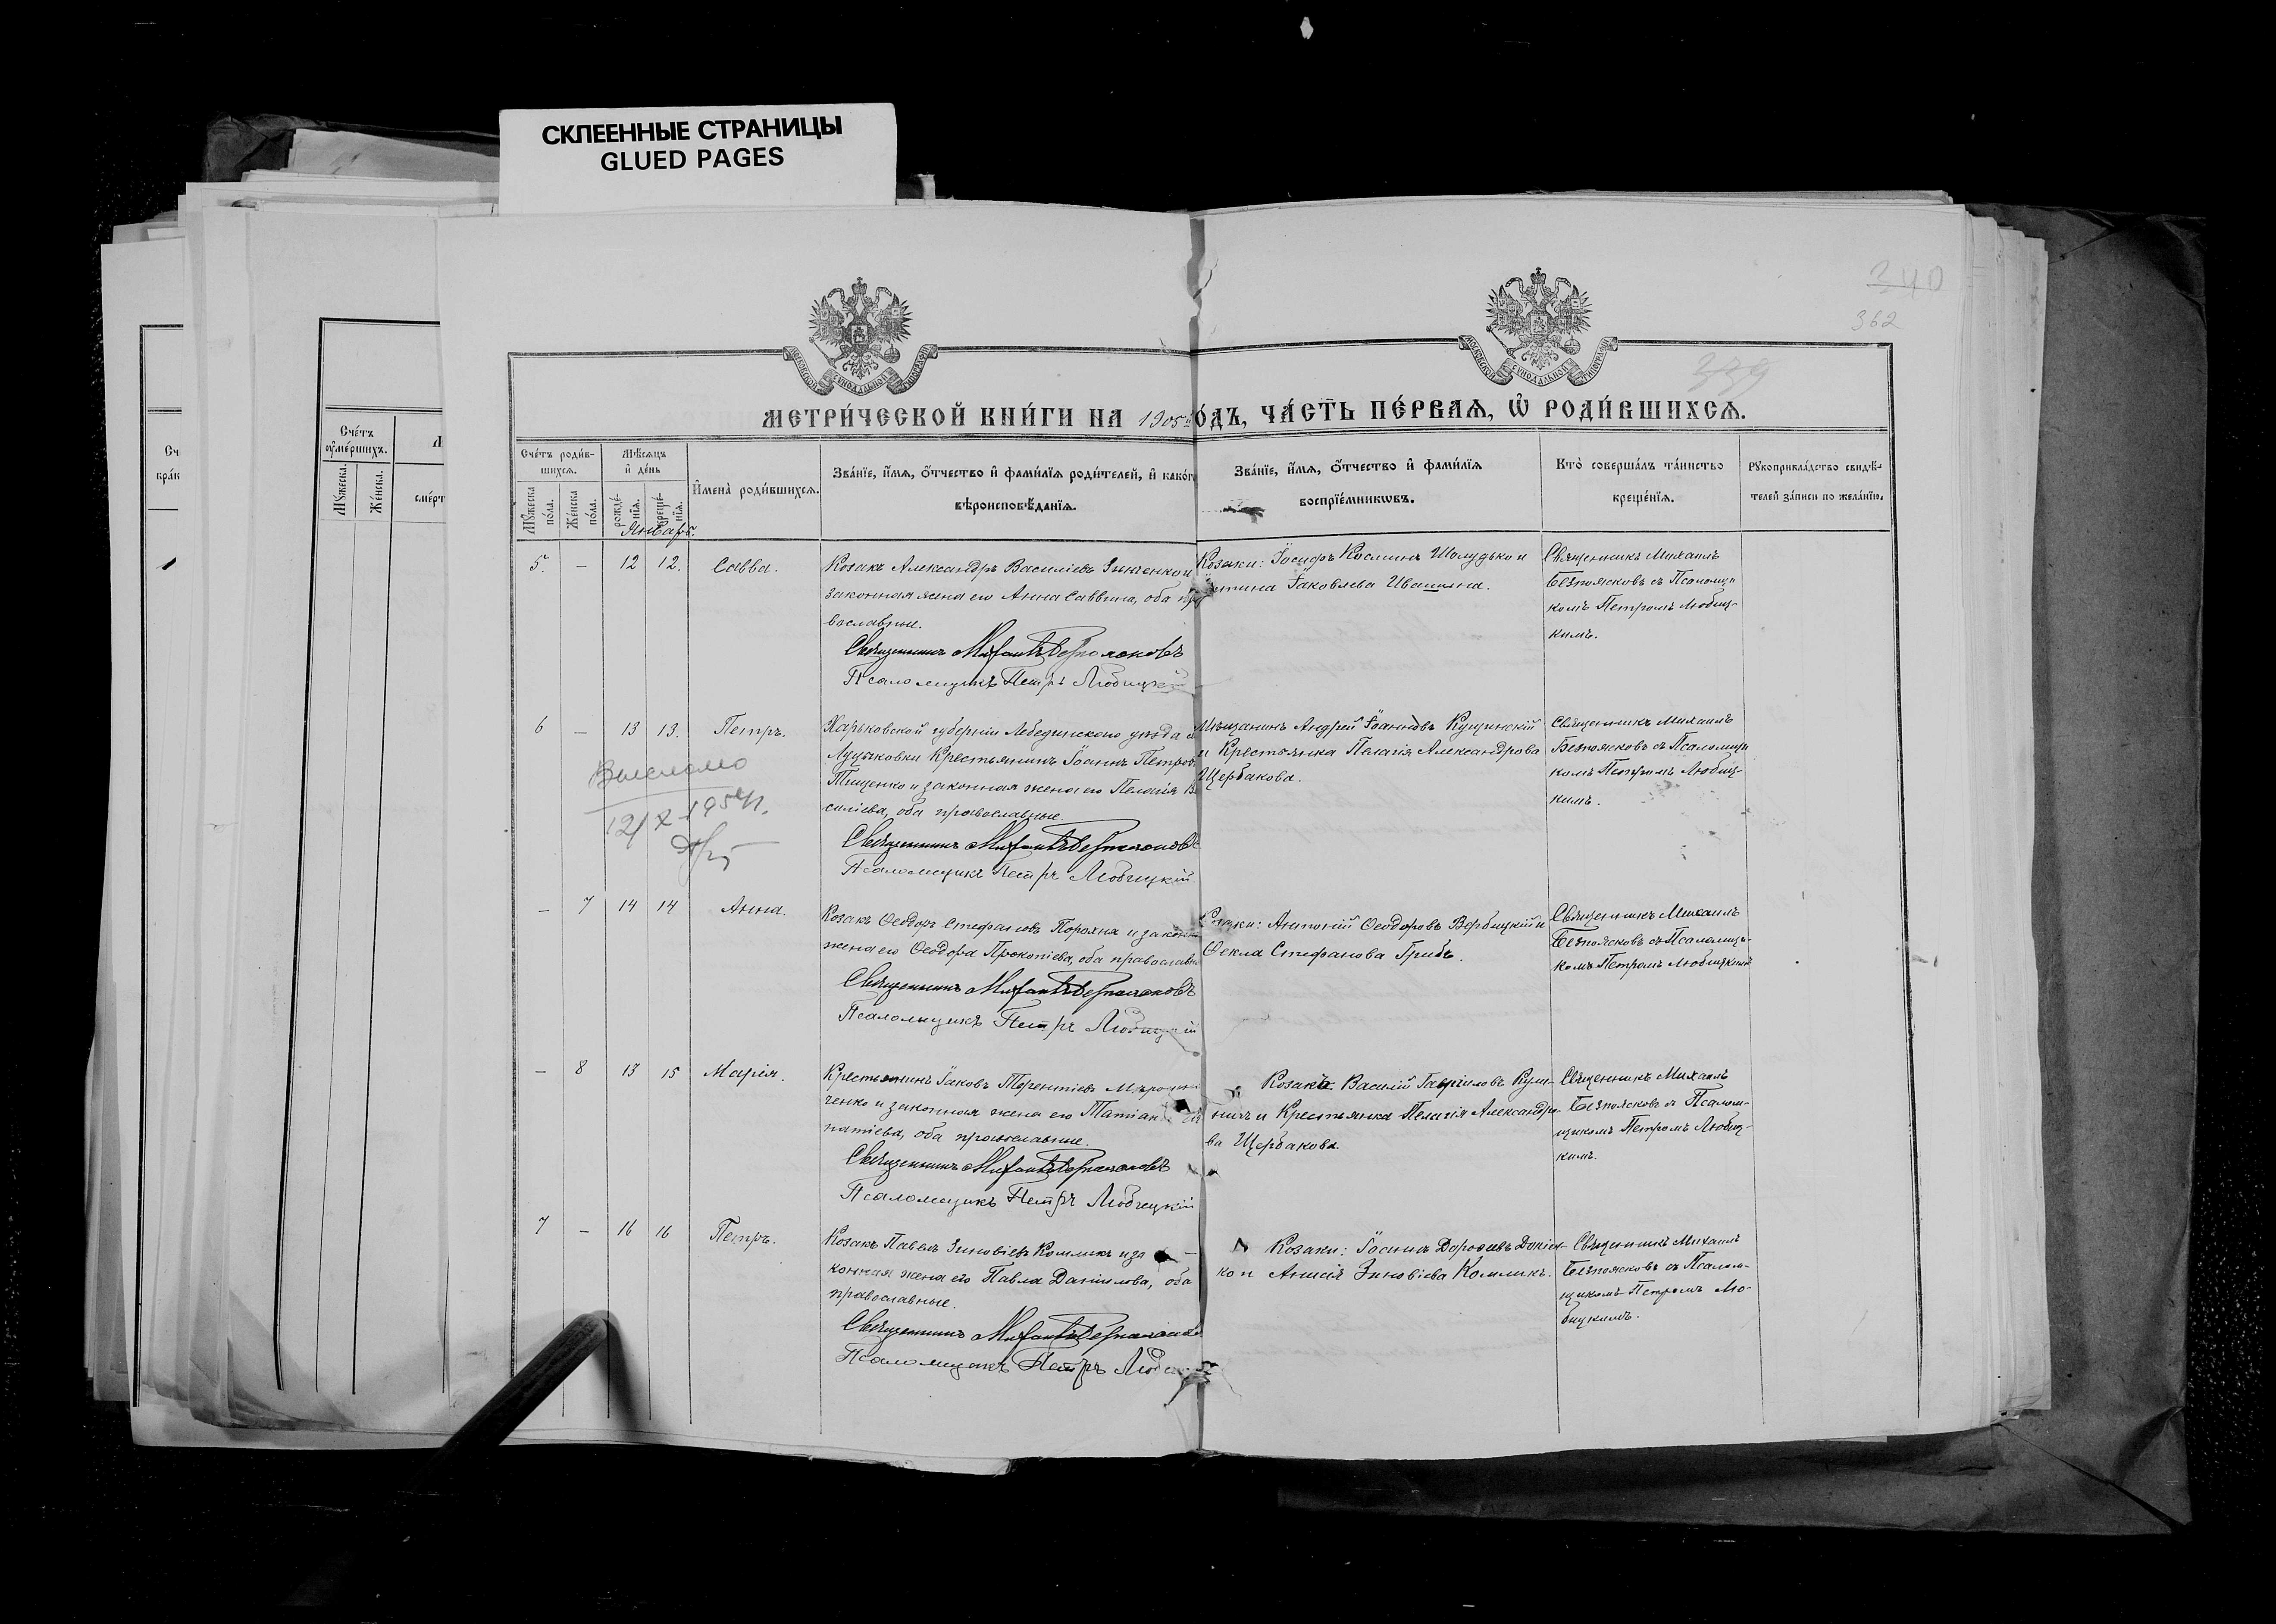 СКЛЕЕННЫЕ СТРАНИЦЫ
GLUED PAGES
240
362
339
МОСКОВСКОЙ СѴНОДАЛЬНОЙ ТИПОГРАФІИ
МОСКОВСКОЙ СѴНОДАЛЬНОЙ ТИПОГРАФІИ
МЕТРИ́ЧЕСКОЙ КНИ́ГИ НА 1905 й ГО́ДЪ, ЧА́СТЬ ПЕ́РВАЯ, Ѡ҆ РОДИ́ВШИХСЯ.
Счéтъ ѹ҆мéршихъ.
Мꙋжеска.
Жéнска.
Счéтъ роди́в-
шихся.
Мꙋжеска пóла.
Жéнска пóла.
Мѣ́сяцъ
и҆ дéнь
рождé-
нїя.
крещé-
нїя.
И҆менà роди́вшихся.
Звáнїе, и҆́мя, ѻ҆́тчество и҆ фами́лїя роди́телей, и҆ какóгѡ
вѣроисповѣ́данїя.
Звáнїе, и҆́мя, ѻ҆́тчество и҆ фами́лїя
воспрїéмникѡвъ.
Ктò совершáлъ тáинство
крещéнїя.
Рꙋкоприклáдство свидѣ́-
телей зáписи по желáнїю.
Январь.
5. — 12 12. Савва.
Козакъ Александръ Василіевъ Зинченко и
законная жена его Анна Саввина, оба пра
вославные.
Священникъ Михаилъ Безпоясковъ
Псаломщикъ Петръ Любицкій
Козаки: Іосифъ Косминъ Шолудько и
Іаковлева Ивашина.
Священникъ Михаилъ
Безпоясковъ съ Псаломщи
комъ Петромъ Любиц-
кимъ.
6 — 13 13. Петръ.
Выслано
12/X 1954 г.
Харьковской губерніи Лебединскаго уѣзда с
Луцыковки Крестьянинъ Іоаннъ Петров.
Тищенко и законная жена его Пелагія Ва
силіева, оба православные.
Священникъ Михаилъ Безпоясковъ
Псаломщикъ Петръ Любицкій
Мѣщанинъ Андрей Іоанновъ Кущинскій
и Крестьянка Пелагія Александрова
Щербакова.
Священникъ Михаилъ
Безпоясковъ съ Псаломщи
комъ Петромъ Любиц-
кимъ.
— 7 14 14 Анна.
Козакъ Ѳеодоръ Стефановъ Порохня и законн
жена его Ѳеодора Прокопіева, оба православн
Священникъ Михаилъ Безпоясковъ
Псаломщикъ Петръ Любицкій
Козаки: Антоній Ѳеодоровъ Вербицкій и
Ѳекла Стефанова Грибъ.
Священникъ Михаилъ
Безпоясковъ съ Псаломщи-
комъ Петромъ Любицкимъ
— 8 13 15 Марія.
Крестьянинъ Іаковъ Терентіевъ
ченко и законная жена его Татіана
натіева, оба православные.
Священникъ Михаилъ Безпоясковъ
Псаломщикъ Петръ Любицкій
Козакъ Василій Гавріиловъ Куш-
ниръ и Крестьянка Пелагія Александро-
ва Щербакова.
Священникъ Михаилъ
Безпоясковъ съ Псалом-
щикомъ Петромъ Любиц-
кимъ.
7 — 16 16 Петръ.
Козакъ Павелъ Зиновіевъ Комликъ и за
конная жена его Павла Даніилова, оба
православные.
Священникъ Михаилъ Безпоясковъ
Псаломщикъ Петръ Люби
Козаки: Іоаннъ Дороѳеевъ
ко и Анисія Зиновіева Комликъ.
Священникъ Михаилъ
Безпоясковъ съ Псалом-
щикомъ Петромъ Лю-
бицкимъ.